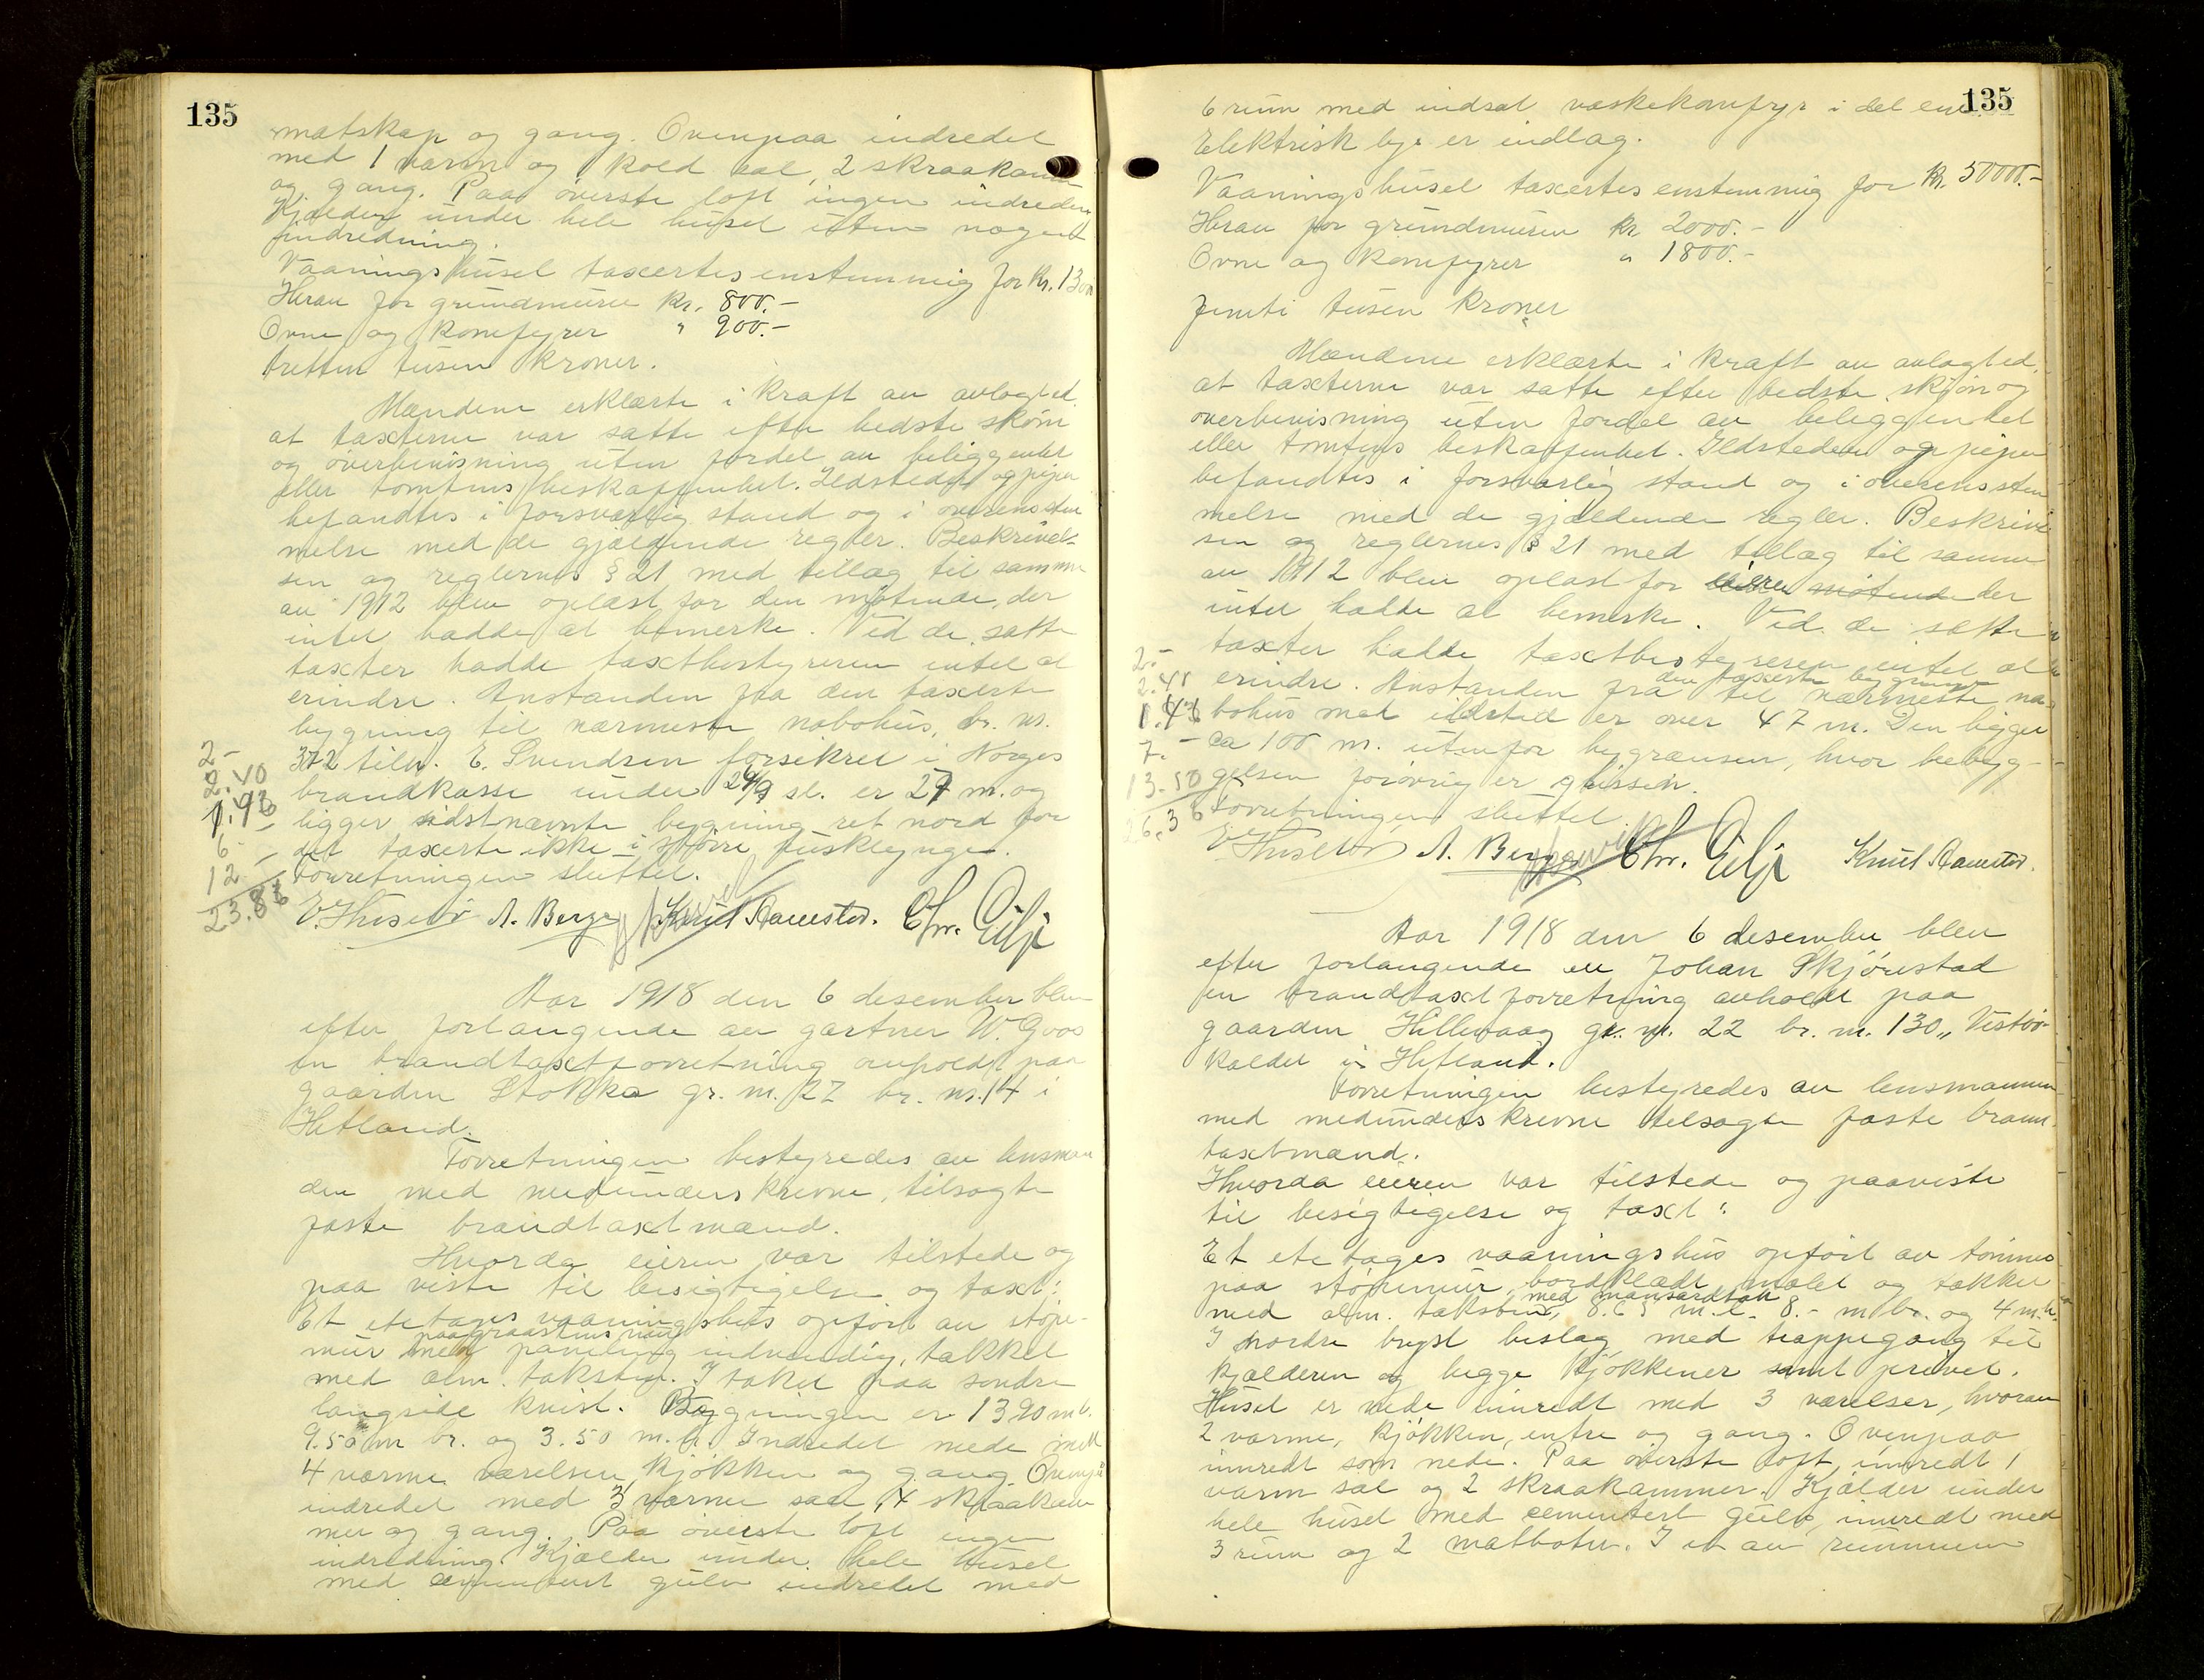 135
matskap og gang. Ovenpaa indredet
med 1 varm og 1 kold sal, 2 skraakam
og gang. Paa øverste loft ingen indredn
Kjælder under hele huset uten nogen
indredning.
Vaaningshuset taxertes enstemmig for kr. 13000
Herav for grundmuren kr. 800.-
Ovne og komfyrer " 900.-
tretten tusen kroner.
Mændene erklærte i kraft av avlagt ed
at taxterne var satte efter bedste skjøn
og overbevisning uten fordel av beliggenhet
eller tomtens beskaffenhet. Ildstedet og pipen
befandtes i forsvarlig stand og i overensstem
melse med de gjældende regler. Beskrivel-
sen og reglernes § 21 med tillæg til samme
av 1912 blev oplæst for den møtende, der
intet hadde at bemerke. Ved de satte
taxter hadde taxtbestyreren intet at
erindre. Avstanden fra den taxerte
bygning til nærmeste nabohus, br. nr.
372 tilh. E. Svendsen forsikret i Norges
brandkasse under 24/9 sl. er 27 m. og
ligger sidstnævnte bygning ret nord for
det taxerte ikke i større husklynge.
Forretningen sluttet.
2-
2.40
1.46
6.-
12.-
23.86
E. Thisted A. Berge Knut Ramstad. Chr. Gilje
Aar 1918 den 6 desember blev
efter forlangende av gartner W. Goos
en brandtaxtforretning avholdt paa
gaarden Stokka gr. nr. 27 br. nr. 14 i
Hetland.
Forretningen bestyredes av lensman
den med medunderskrevne, tilsagte
faste brandtaxtmænd.
Hvorda eieren var tilstede og
paa viste til besigtigelse og taxt:
Et etetages vaaningshus opført av støpe-
paa graastens mur
mur med paneling indvendig, tækket
med alm. taksten. I taket paa søndre
langside kvist. Bygningen er 13.90 m l.
9.50 m br. og 3.50 m. h. Indredet nede med
4 varme værelser, kjøkken og gang. Ovenpaa
indredet med 3 varme sale, 4 skraakam
mer og gang. Paa øverste loft ingen
indredning. Kjælder under hele huset
med cementert gulv indredet med
135
6 rum med indsat vaskekomfyr i det ene
Elektrisk lys er indlag.
Vaaningshuset taxertes enstemmig for kr. 50000.-
Herav for grundmuren kr 2000.-
Ovne og komfyrer " 1800.-
femti tusen kroner
Mændene erklærte i kraft av avlagt ed,
at taxterne var satte efter bedste skjøn og
overbevisning uten fordel av beliggenhet
eller tomtens beskaffenhet. Ildstedene og pipen
befandtes i forsvarlig stand og i overensstem
melse med de gjældende regler. Beskrivel
sen og reglernes § 21 med tillæg til samme
av 1912 blev oplæst for eieren møtende der
intet hadde at bemerke. Ved de satte
taxter hadde taxtbestyreren intet at
den taxerte bygning
erindre. Avstanden fra til nærmeste na-
bohus med ildsted er over 47 m. Den ligger
ca 100 m. utenfor bygrænsen, hvor bebyg-
gelsen forøvrig er grissen.
Forretningen sluttet.
2.-
2.40
1.46
7.-
13.50
26.36
E. Thisted A. Berge Chr. Gilje Knut Ramstad.
Aar 1918 den 6 desember blev
efter forlangende av Johan Skjørestad
en brandtaxtforretning avholdt paa
gaarden Hillevaag gr. nr. 22 br. nr. 130, Vestø-
kaldet i Hetland.
Forretningen bestyredes av lensmannen
med medunderskrevne tilsagte faste brann
taxtmænd.
Hvorda eieren var tilstede og paaviste
til besigtigelse og taxt:
Et etetages vaaningshus opført av tømmer
paa støpemur, bordklædt, malet og tækket
med mansardtak
med alm. taksten, 8.65 m. l. 8.- m br. og 4 m. h.
I nordre bryst beslag med trappegang til
kjælderen og begge kjøkkener samt privet.
Huset er nede innredt med 3 værelser, hvorav
2 varme, kjøkken, entre og gang. Ovenpaa
innredt som nede. Paa øverste loft, innredt 1
varm sal og 2 skraakammer. Kjælder under
hele huset med cementert gulv, innredt med
3 rum og 2 matboder. I et av rummene